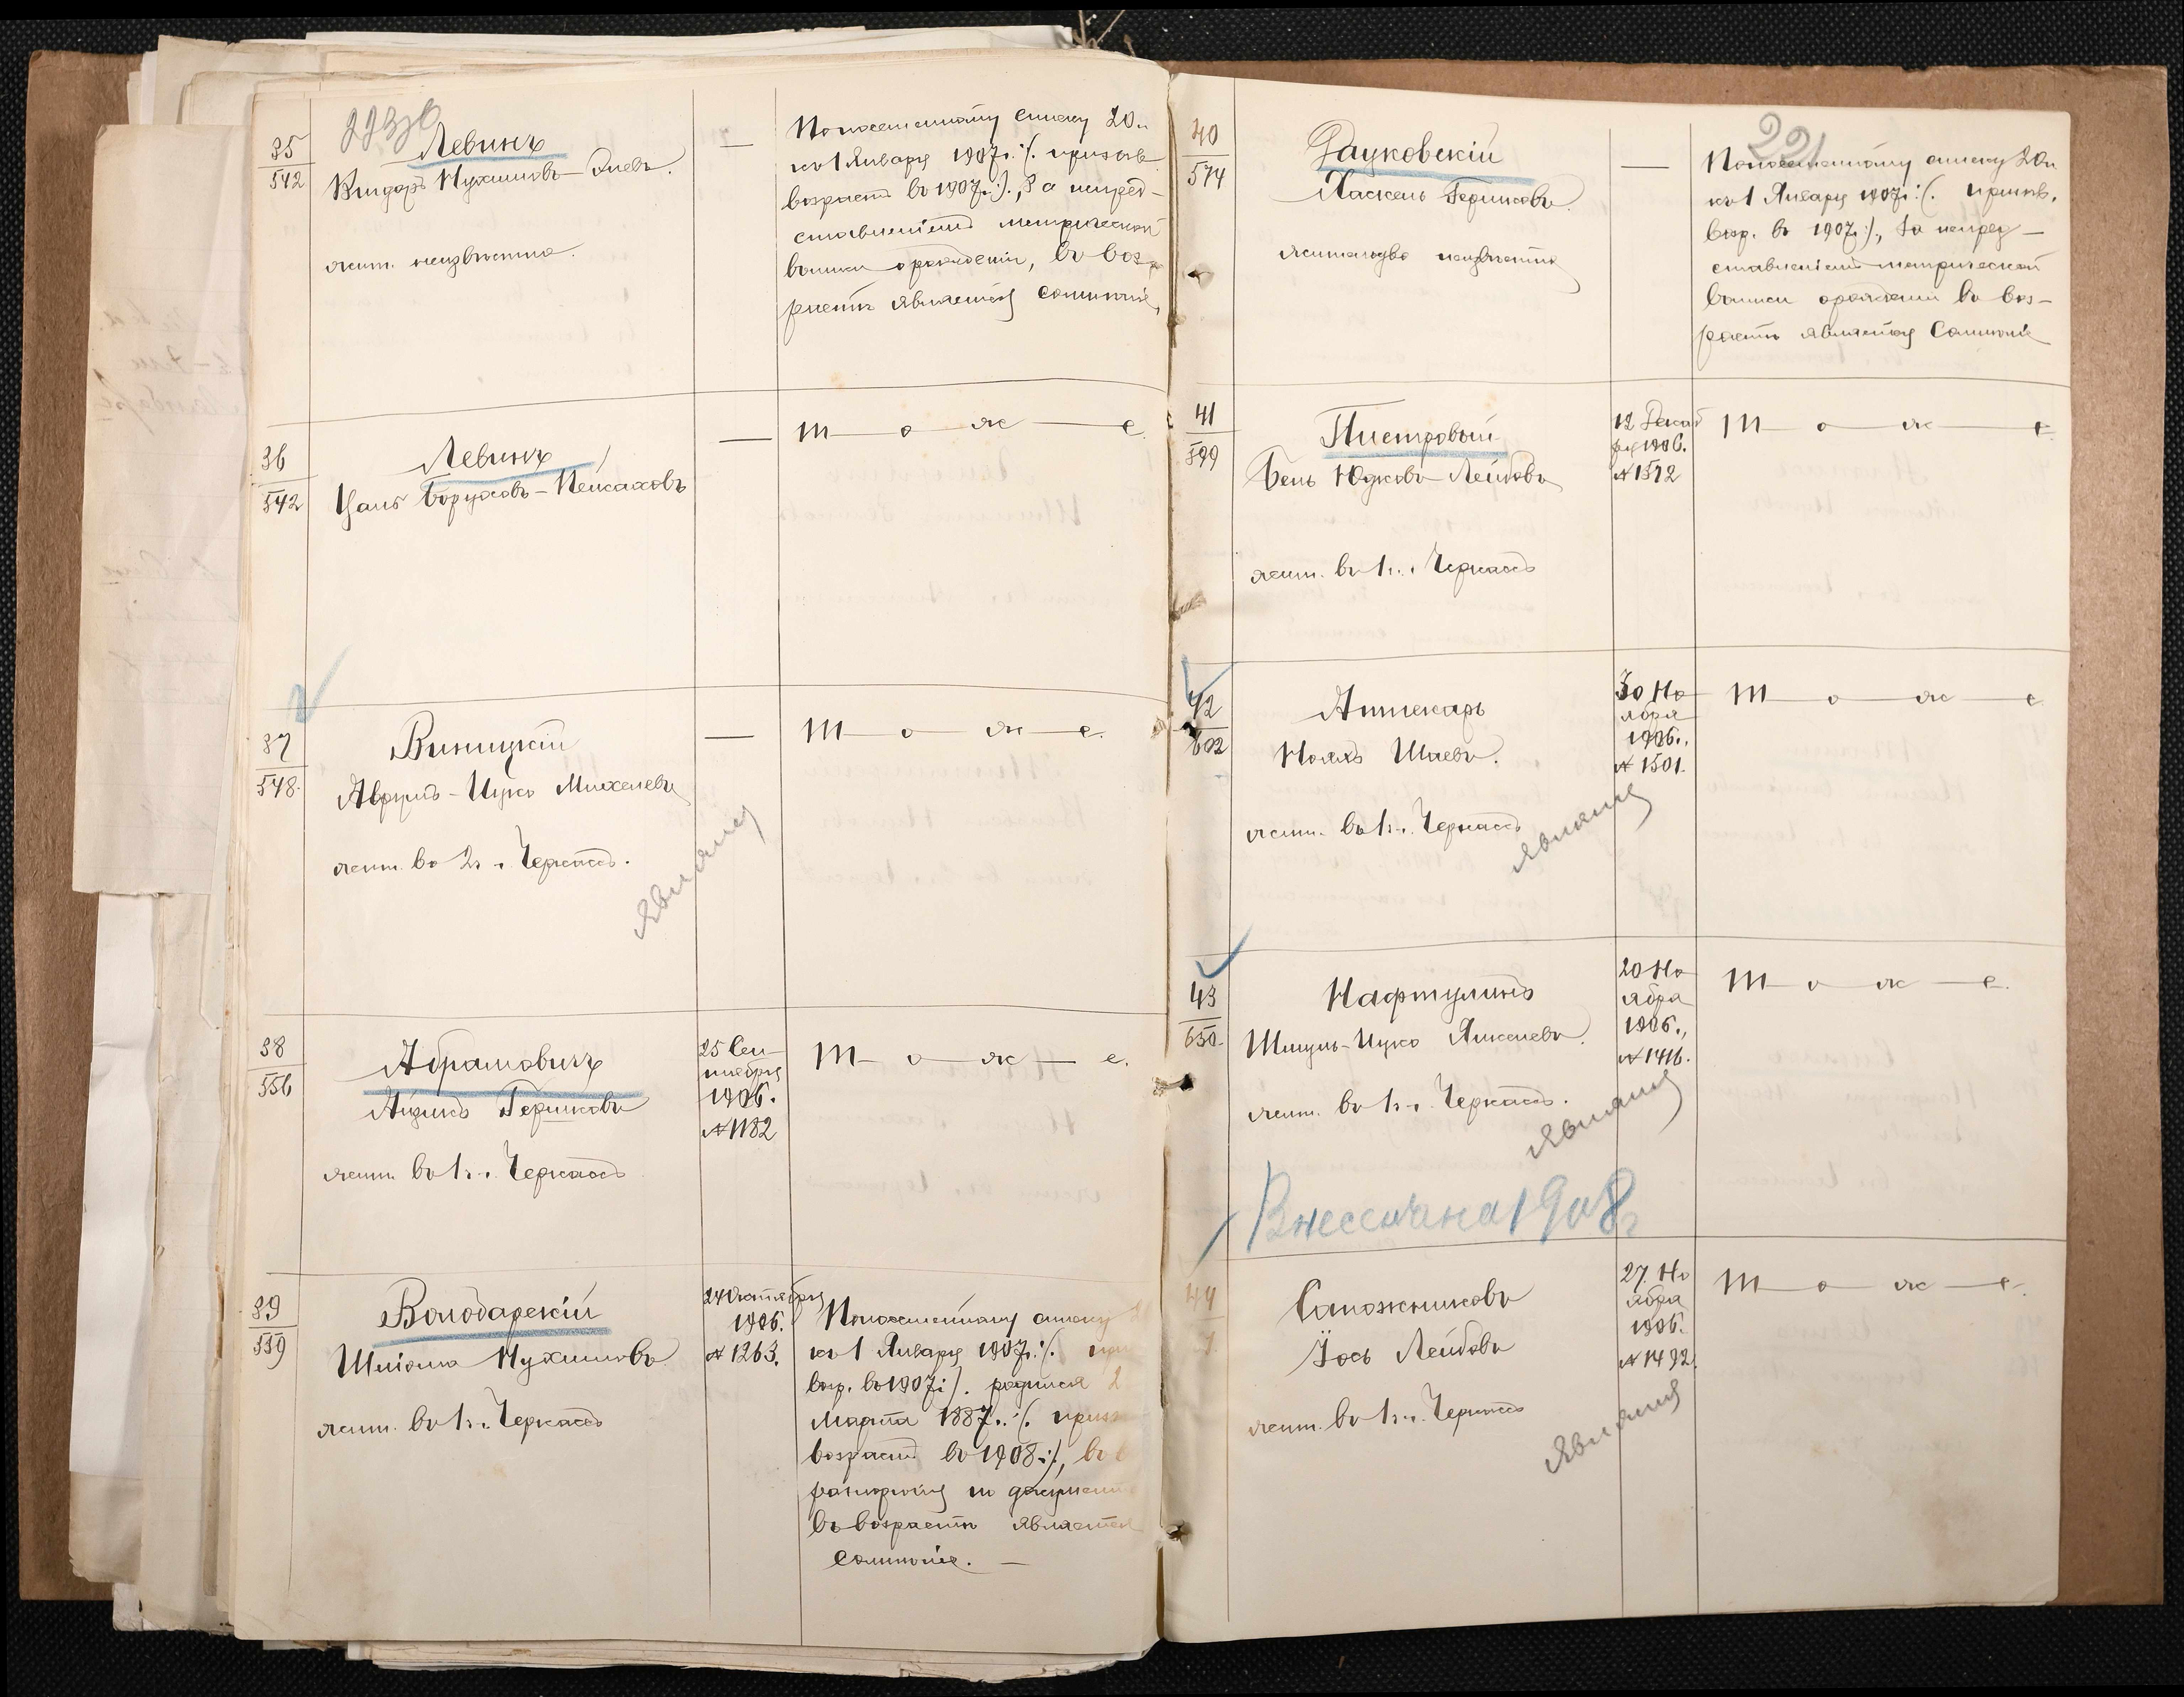 35
542
Левинъ
Нухимовъ-
жит. неизвѣстно.
—
По посемейному списку 20 л.
къ 1 Январу 1907 г. /. призыв.
возрастъ въ 1907 г. /., За непред-
ставленіемъ метрической
выписи о рожденіи, въ воз-
растѣ является сомнѣніе,
36
542
Левинъ
Боруховъ-Пейсаховъ
—
т о ж е.
37
548.
Виницкій
Аврумъ-Ицко Михелевъ
жит. въ 2 г. Черкасъ.
—
т о ж е.
явился
38
556
Абрамовичъ
Айзикъ Гершковъ
жит. въ 1 г. Черкасъ
25 Сен-
тября
1906.
№ 1182
т о ж е.
39
559
Володарскій
Шліома Нухимовъ
жит. въ 1 г. Черкасъ
24 Октября
1906.
№ 1263.
По посемейному списку
къ 1 Январу 1907 г. /.
вор. въ 1907 г. /. родился 2
Марта 1887 г. /. призыв
возрастъ въ 1908 г. /, въ
по
въ возрастѣ является
сомнѣніе. —
221
40
574
Рауковскій
Хаскель Гершковъ
жительство неизвѣстно
—
По посемейному списку 20 л
къ 1 Январу 1907 г. /. призыв.
вор. въ 1907 г. /., За непред-
ставленіемъ метрической
выписи о рожденіи въ воз-
растѣ является сомнѣніе
41
599
Пистровый
Бень Юдковъ-Лейбовъ
жит. въ 1 г. Черкасъ
12 Декаб
ря 1906.
№ 1572
т о ж е.
42
602
Аптекарь
Шаевъ.
жит. въ 1 г. Черкасъ
30 Но
ября
1906.,
№ 1501.
т о ж е
явился
43
650.
Нафтулинъ
Шмуль-Ицко Янкелевъ.
жит. въ 1 г. Черкасъ.
20 Но
ября
1906.,
№ 1416.
т о ж е.
явился
Внесен на 1908 г
44
Сапожниковъ
Іось Лейбовъ
жит. въ 1 г. Черкасъ
27 Но
ября
1906.
№ 1492.
т о ж е.
явился